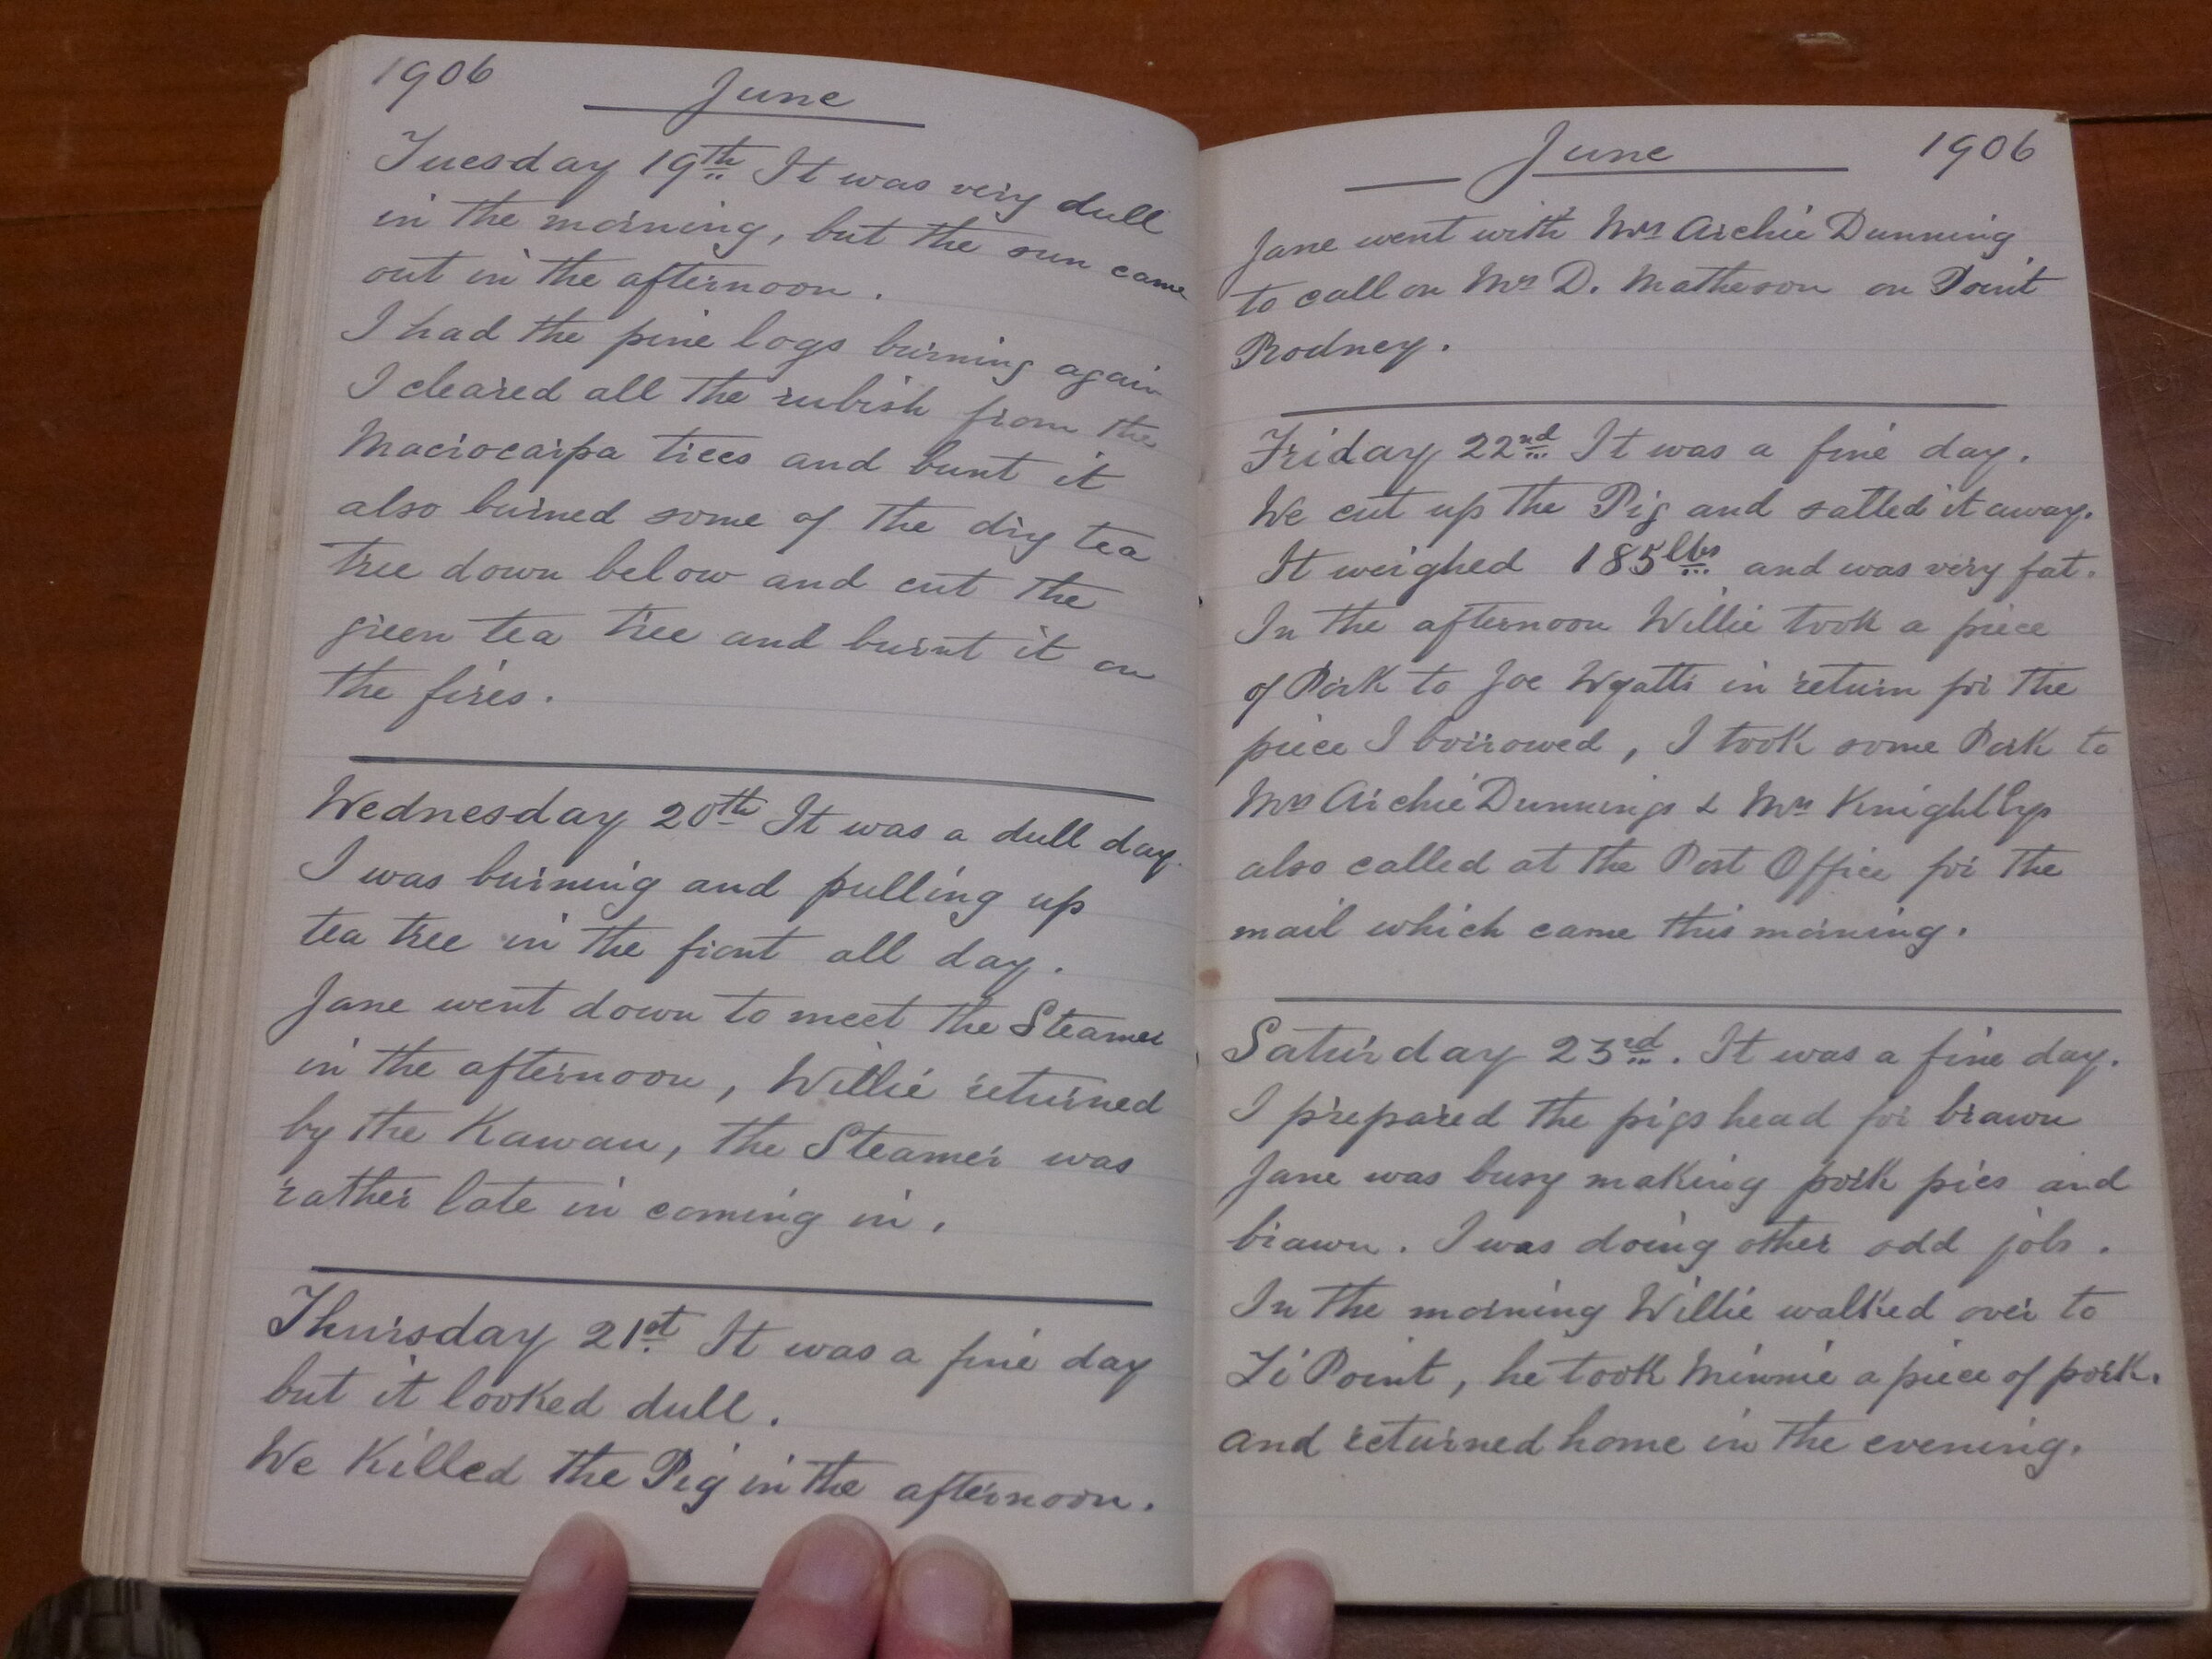 1906
June
Tuesday 19th It was very dull
in the morning, but the sun came
out in the afternoon.
I had the pine logs burning again
I cleared all the rubish from the
Macrocarpa trees and bunt it
also burned some of the dry tea
tree down below and cut the
green tea tree and burnt it on
the fires.
Wednesday 20th It was a dull day.
I was burning and pulling up
tea tree in the front all day.
Jane went down to meet the Steamer
in the afternoon, Willie returned
by the Kawau, the Steamer was
rather late in coming in.
Thursday 21st It was a fine day
but it looked dull.
We Killed the Pig in the afternoon.
June 1906
Jane went with Mrs Archie Dunning
to call on Mrs D. Matheson on Point
Rodney.
Friday 22nd It was a fine day.
We cut up the Pig and salted it away.
It weighed 185lbs and was very fat.
In the afternoon Willie took a piece
of Pork to Joe Wyatts in return for the
piece I borrowed, I took some Pork to
Mrs Archie Dunnings & Mrs Knightlys
also called at the Post Office for the
mail which came this morning.
Saturday 23rd. It was a fine day.
I prepared the pigs head for brawn
Jane was busy making pork pies and
brawn. I was doing other odd jobs.
In the morning Willie walked over to
Ti Point, he took Minnie a piece of pork.
and returned home in the evening.